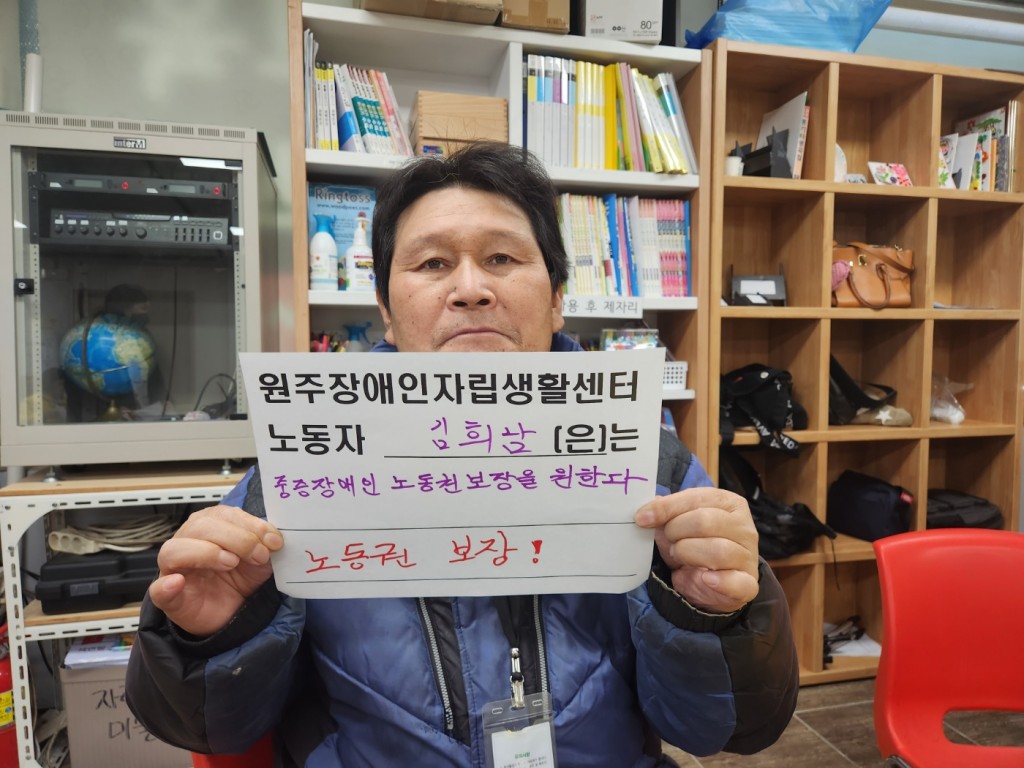 interM
80
Ringtoss
사용 후 제자리
원주장애인자립생활센터
노동자 김희남 (은)는
중증장애인 노동권보장을 원한다
노동권 보장!